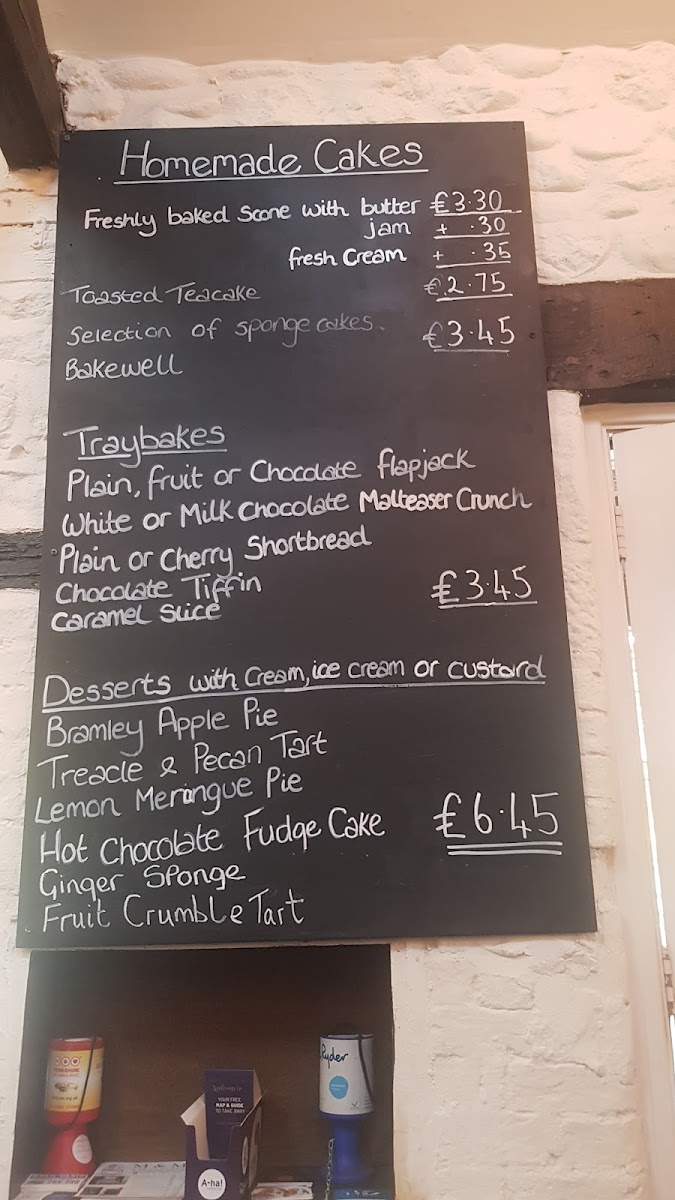 Homemade Cakes
Freshly baked Scone with butter £3.30
jam + .30
fresh Cream + .35
Toasted Teacake £2.75
Selection of sponge cakes. £3.45
Bakewell
Traybakes
Plain, fruit or Chocolate flapjack
White or Milk Chocolate Malteaser Crunch
Plain or Cherry Shortbread
Chocolate Tiffin £3.45
Caramel Slice
Desserts with Cream, ice cream or custard
Bramley Apple Pie
Treacle & Pecan Tart
Lemon Meringue Pie
Hot Chocolate Fudge Cake £6.45
Ginger Sponge
Fruit Crumble Tart
YORKSHIRE
Ryder
Welcome to
YOUR FREE
MAP & GUIDE
TO TAKE AWAY
A-ha!